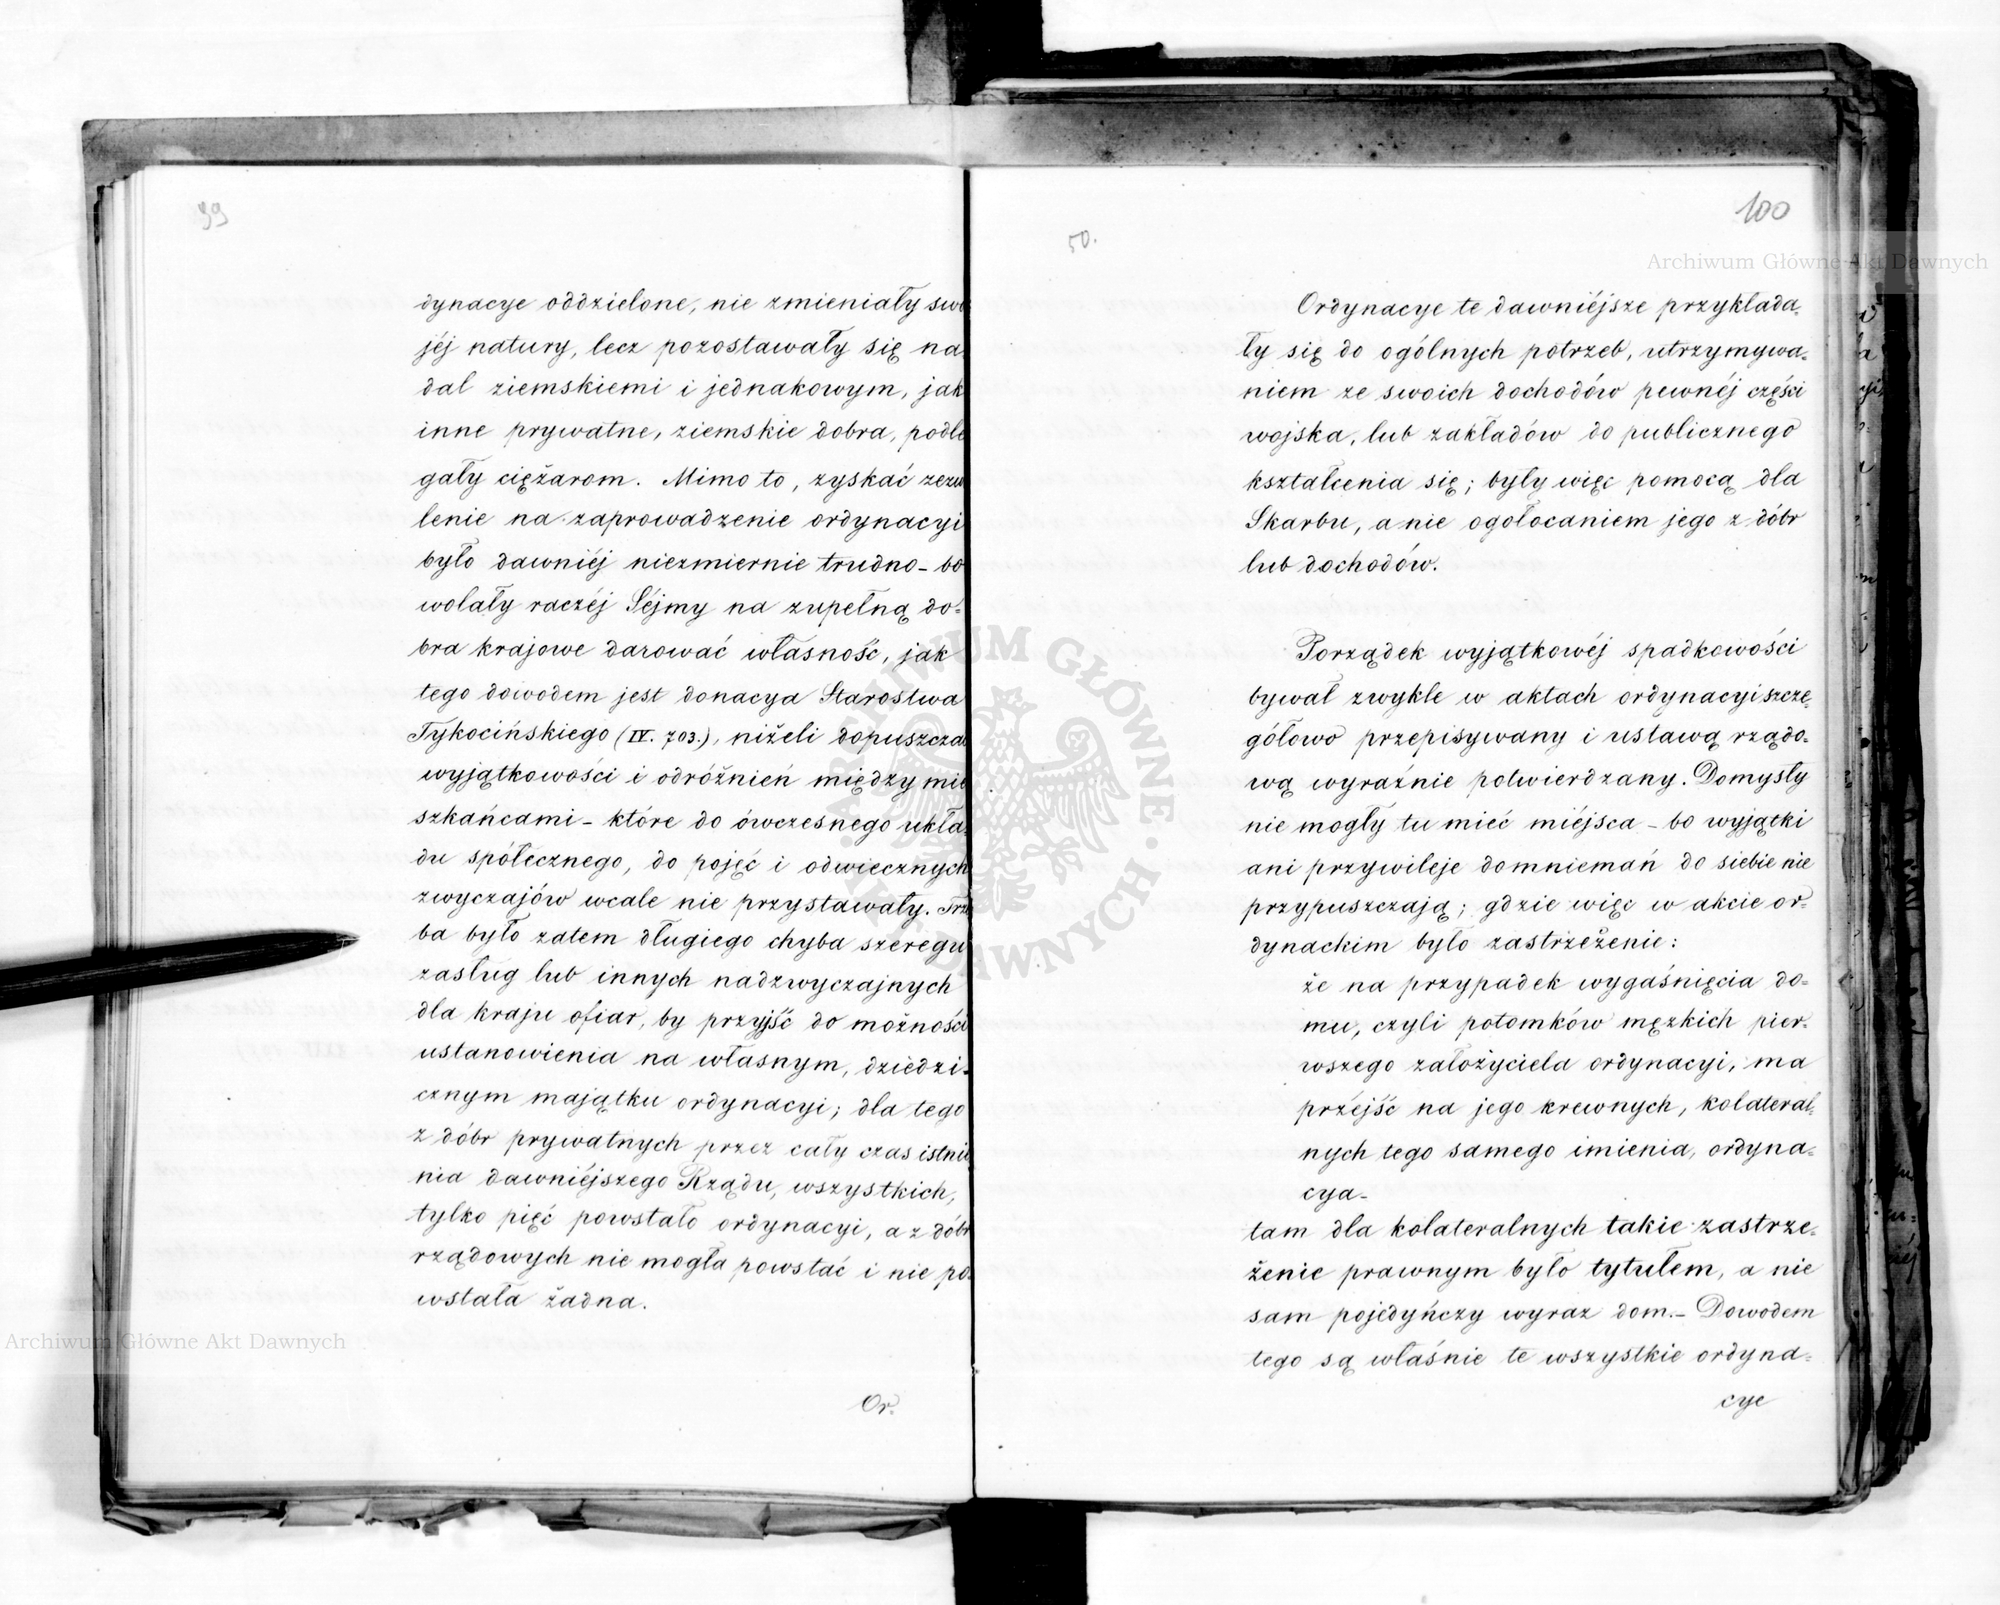 99
dynacye oddzielone, nie zmieniały swo
jéj natury, lecz pozostawały się na
dal ziemskiemi i jednakowym, jak
inne prywatne, ziemskie dobra, podle
gały ciężarom. Mimo to, zyskać zezw
lenie na zaprowadzenie ordynacyi
było dawniéj niezmiernie trudno – bo
wolały raczéj Séjmy na zupełną do-
bra krajowe darować własność, jak
tego dowodem jest donacya Starostwa
Tykocińskiego (IV. 703.), niżeli dopuszcza
wyjątkowości i odróżnień między mie
szkańcami – które do ówczesnego ukła
du spółecznego, do pojęć i odwiecznych
zwyczajów wcale nie przystawały. Trze
ba było zatem długiego chyba szeregu
zasług lub innych nadzwyczajnych
dla kraju ofiar, by przyjść do możności
ustanowienia na własnym, dziedzi-
cznym majątku ordynacyi; dla tego
z dóbr prywatnych przez cały czas istnie
nia dawniéjszego Rządu, wszystkich,
tylko pięć powstało ordynacyi, a z dóbr
rządowych nie mogła powstać i nie po-
wstała żadna.
Or-
100
50.
Ordynacye te dawniéjsze przykłada-
ły się do ogólnych potrzeb, utrzymywa-
niem ze swoich dochodów pewnéj części
wojska, lub zakładów do publicznego
kształcenia się; były więc pomocą dla
Skarbu, a nie ogołocaniem jego z dóbr
lub dochodów.
Porządek wyjątkowéj spadkowości
bywał zwykle w aktach ordynacyi szcze-
gółowo przepisywany i ustawą rządo-
wą wyraźnie potwierdzany. Domysły
nie mogły tu mieć miéjsca – bo wyjątki
ani przywileje domniemań do siebie nie
przypuszczają; gdzie więc w akcie or-
dynackim było zastrzeżenie:
że na przypadek wygaśnięcia do-
mu, czyli potomków męzkich pier-
wszego założyciela ordynacyi, ma
przéjść na jego krewnych, kolateral-
nych tego samego imienia, ordyna-
cya –
tam dla kolateralnych takie zastrze-
żenie prawnym było tytułem, a nie
sam pojedyńczy wyraz dom. – Dowodem
tego są właśnie te wszystkie ordyna-
cye
Archiwum Główne Akt Dawnych
Archiwum Główne Akt Dawnych
ARCHIWUM GŁÓWNE AKT DAWNYCH